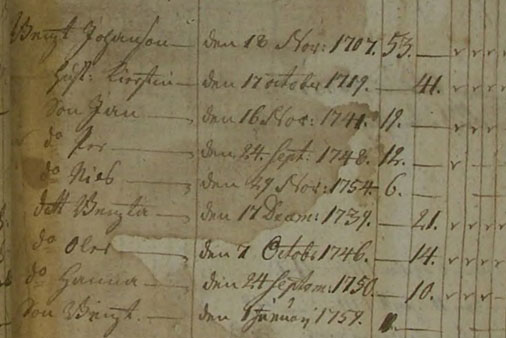 Bengt Johanson — den 18 Nov: 1707. 53. —
Hust: Kierstin — den 17 october 1719. — 41.
Son Jan — den 16 Nov: 1741. 19. —
do Per — den 24 Sept: 1748. 12. —
do Nils — den 29 Nov: 1754. 6. —
dott Bengta — den 17 Decem: 1739. — 21.
do — den 7 Octobr 1746. — 14.
do Hanna — den 24 Septem: 1750. — 10.
Son Bengt. — den 1 Januarij 1759. —